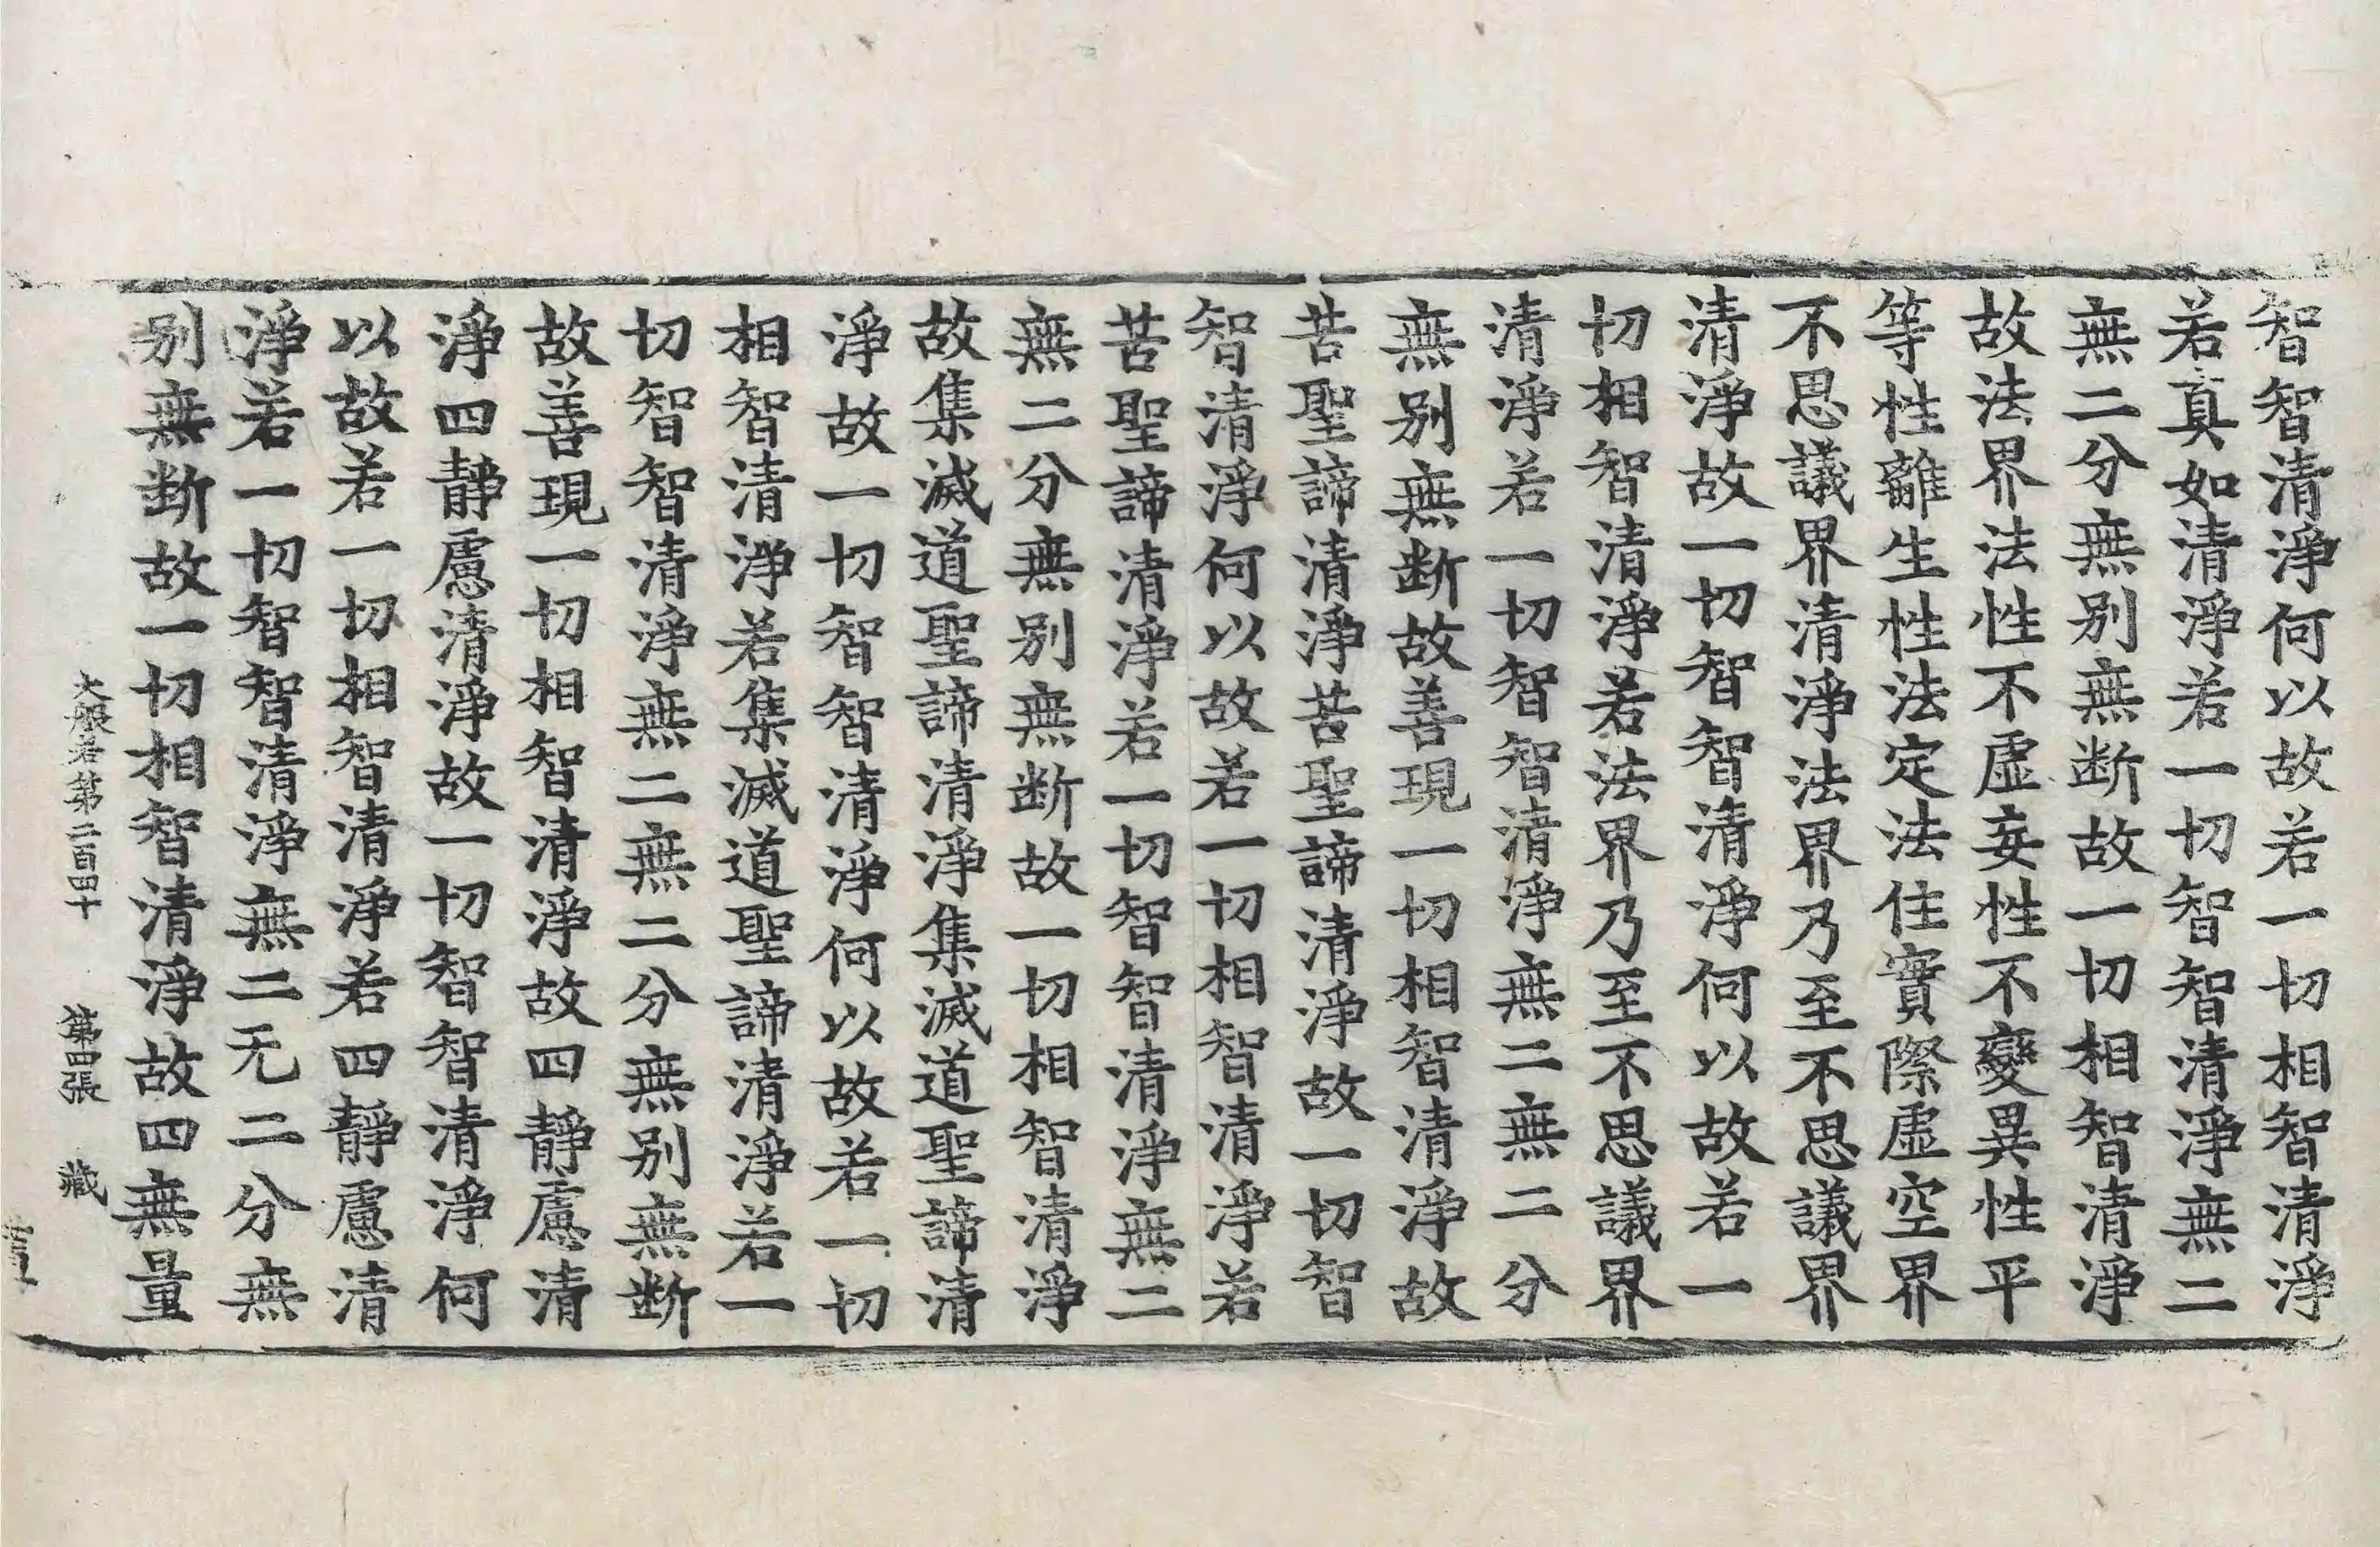 智智清淨何以故若一切相智清淨
若真如清淨若一切智智清淨無二
無二分無別無断故一切相智清淨
故法界法性不虛妄性不變異性平
等性離生性法定法住實際虛空界
不思議界清淨法界乃至不思議界
清淨故一切智智清淨何以故若一
切相智清淨若法界乃至不思議界
清淨若一切智智清淨無二無二分
無别無断故善現一切相智清淨故
苦聖諦清淨苦聖諦清淨故一切智
智清淨何以故若一切相智清淨若
苦聖諦清淨若一切智智清淨無二
無二分無别無断故一切相智清淨
故集滅道聖諦清淨集滅道聖諦清
淨故一切智智清淨何以故若一切
相智清淨若集滅道聖諦清淨若一
切智智清淨無二無二分無别無断
故善現一切相智清淨故四靜慮清
淨四靜慮清淨故一切智智清淨何
以故若一切相智清淨若四靜慮清
淨若一切智智清淨無二无二分無
别無断故一切相智清淨故四無量
大般若第二百四十 第四張 藏